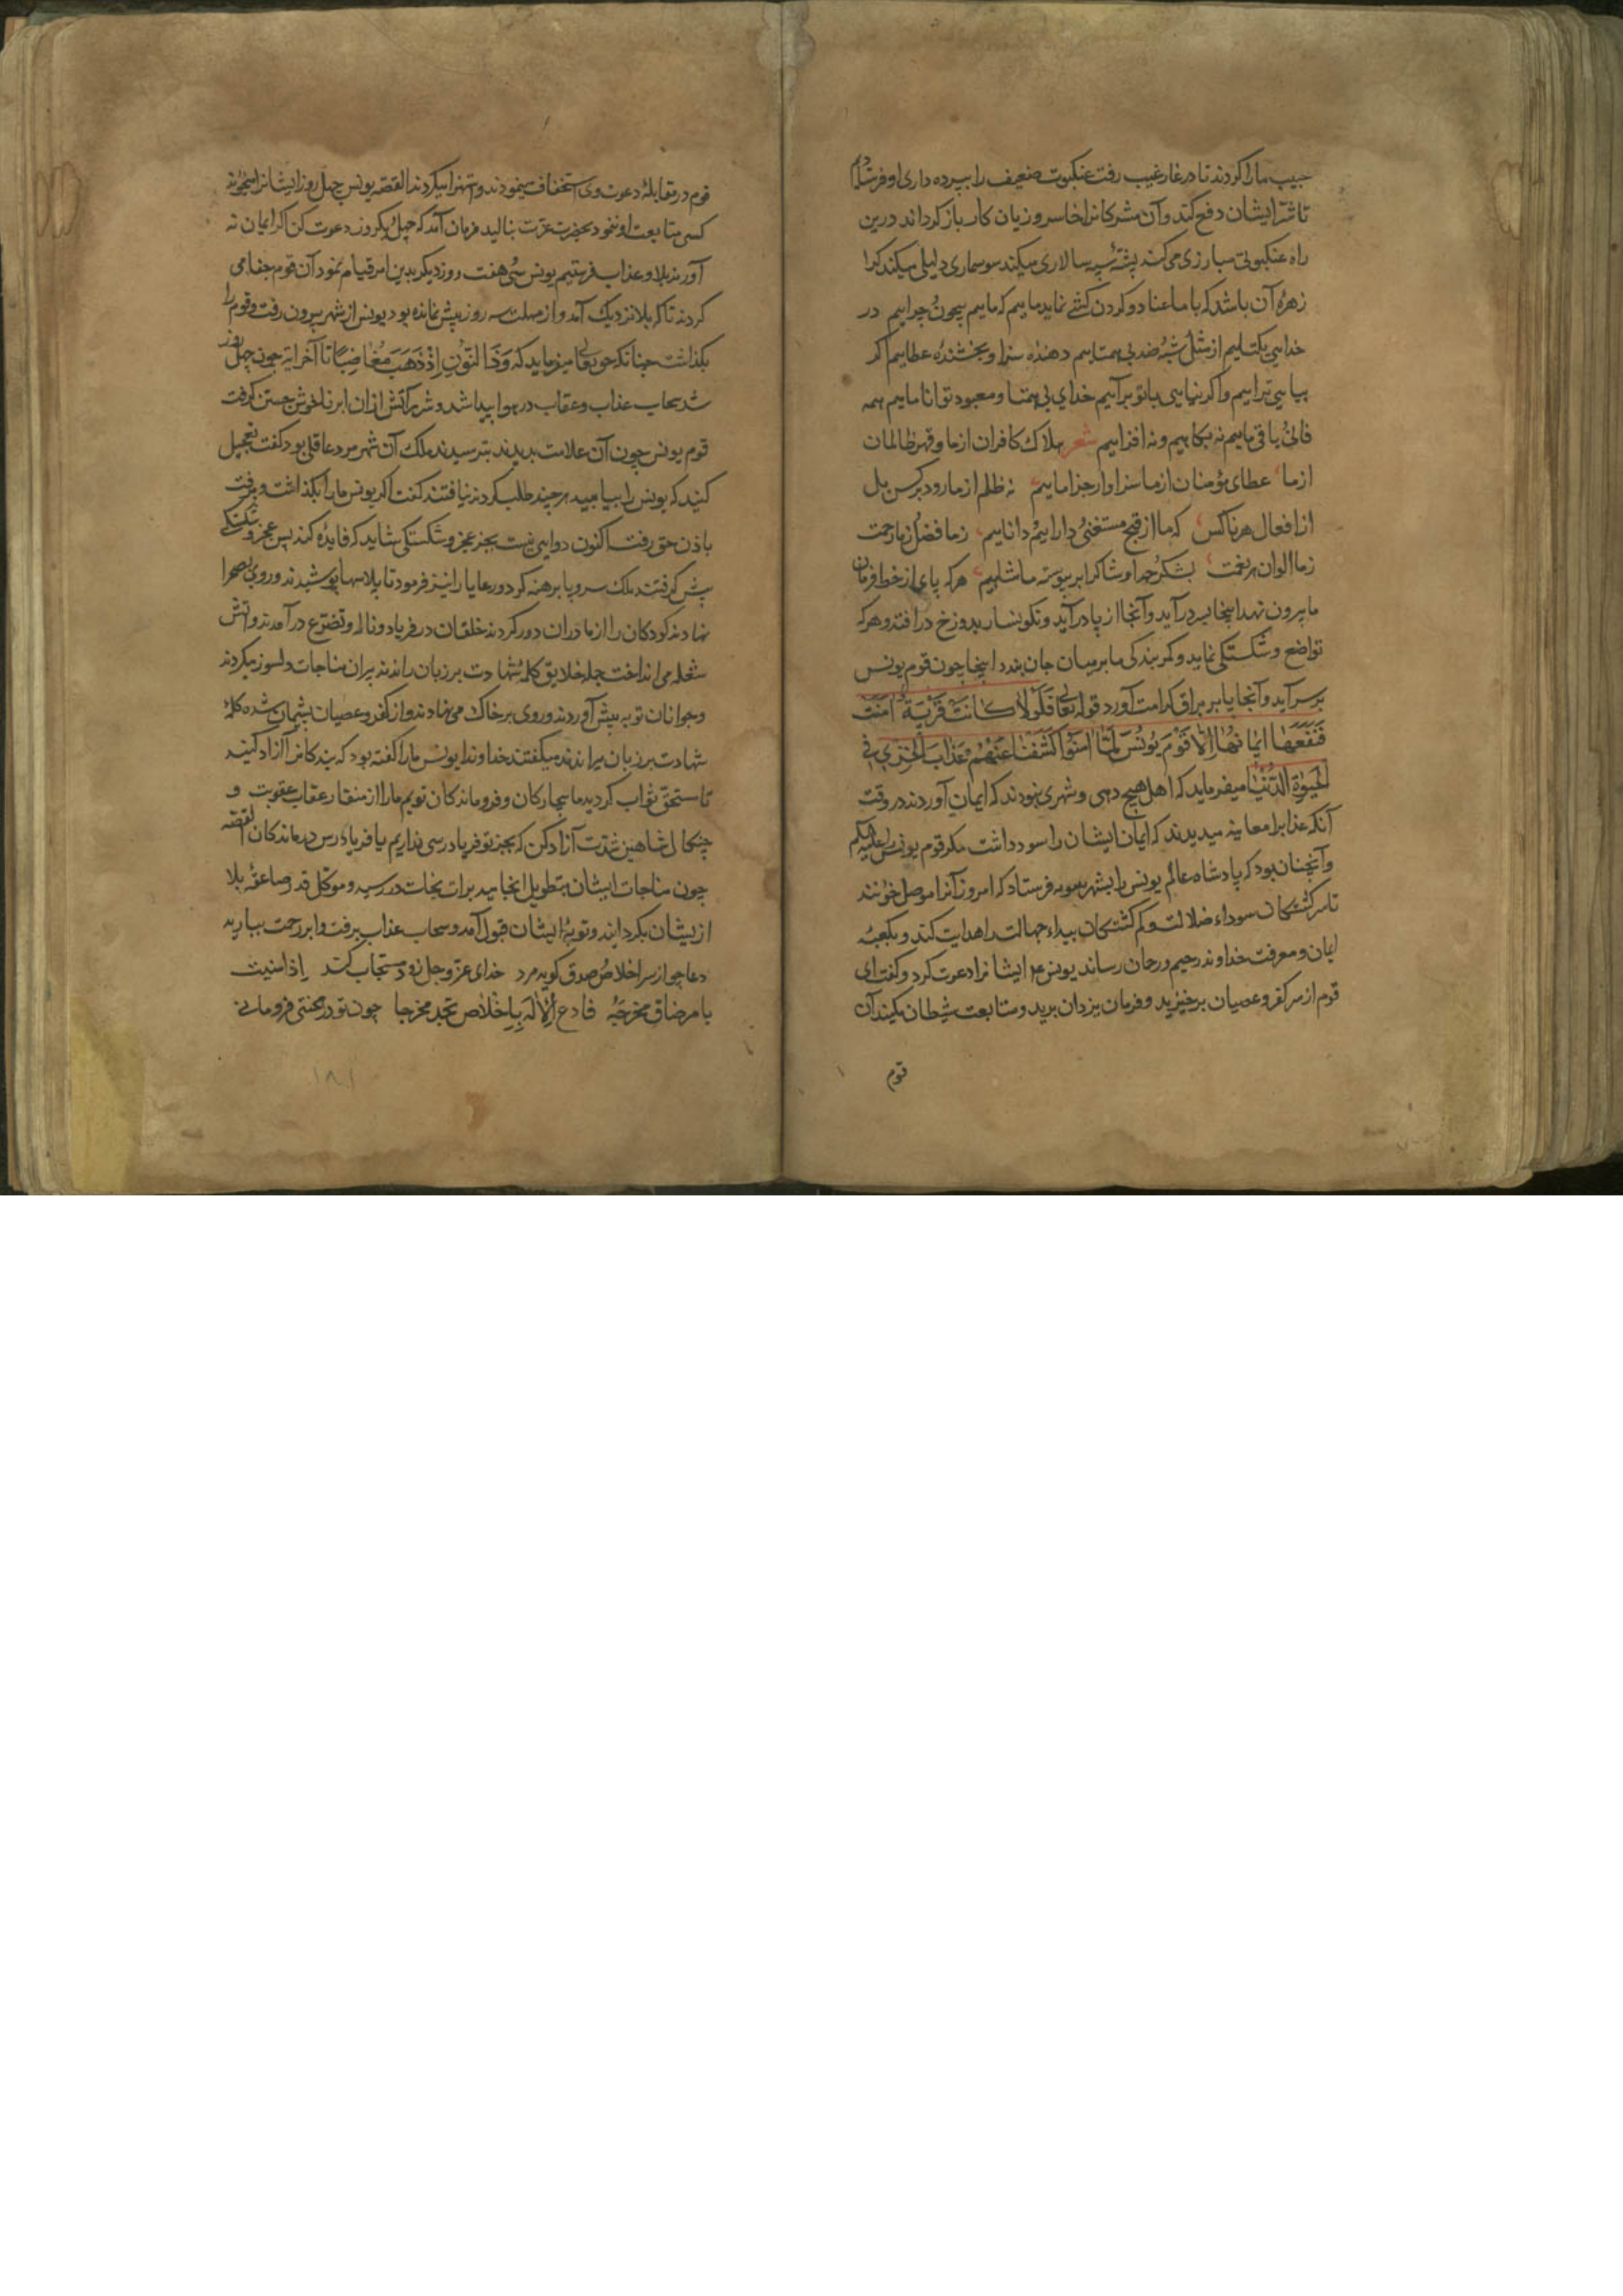 حبیب ما را کردند تا در غار غیب رفت عنکبوت ضعیف را بپرده داری او فرستادم
تا شر ایشان دفع کند و آن مشرکانرا خاسر و زیان کار باز کرداند درین
راه عنکبوتی مبارزی می کند پشهٔ سپه سالاری میکند سوسماری دلیلی میکند کرا
زهرهٔ آن باشد که با ما عناد و کردن کشی نماید ماییم که ماییم بیچون و چراییم در
خدایی یکتاییم از مثل و شبه و ضد بی همتاییم دهنده سزا و بخشندهٔ عطاییم اکر
بیایی تراییم و اکر نیایی با تو برآییم خدای بی همتا و معبود توانا ماییم همه
فانی و باقی ماییم نه بکاهیم و نه افزاییم شعر هلاک کافران از ما و قهر ظالمان
از ما عطای مؤمنان از ما سزاوار جزا ماییم نه ظلم از ما رود بر کس بل
از افعال هر ناکس که ما از قبح مستغنی و داراییم و داناییم ز ما فضل و ز ما رحمت
ز ما الوان هر نعمت بشکر و حمد او شاکر ابر پیوسته ما شاهیم هر که پای از خط فرمان
ما بیرون نهد اینجا بسر درآید و آنجا از پا درآید و نکونسار بدوزخ در افتد و هر که
تواضع و شکستکی نماید و کمر بندکی ما بر میان جان بندد اینجا چون قوم یونس
بر سر آید و آنجا پا بر براق کرامت آورد قوله تعالی فَلَوْلَا كَانَتْ قَرْيَةٌ آمَنَتْ
فَنَفَعَهَا اِيمَانُهَا اِلَّا قَوْمَ يُونُسَ لَمَّا آمَنُوا كَشَفْنَا عَنْهُمْ عَذَابَ الْخِزْيِ فِي
الْحَيٰوةِ الدُّنْيَا میفرماید که اهل هیچ دهی و شهری نبودند که ایمان آوردند در وقت
آنکه عذاب را معاینه میدیدند که ایمان ایشان را سود داشت مکر قوم یونس را علیه السلم
و آنچنان بود که پادشاه عالم یونس را بشهر فرستاد که امروز آنرا موصل خوانند
تا سر کشتکان سوداء ضلالت و کم کشتکان بیداء جهالت را هدایت کند و بکعبهٔ
ایمان و معرفت خداوند رحیم و رحمان رساند یونس ع م ایشانرا دعوت کرد و کفت ای
قوم از سر کفر و عصیان برخیزید و فرمان یزدان برید و متابعت شیطان مکنید آن
قوم
قوم در مقابلهٔ دعوت وی استخفاف مینمودند و استهزا میکردند القصه یونس چهل روز ایشانرا میخواند
کسی متابعت او ننمود بحضرت عزت بنالید فرمان آمد که چهل و یکروز دعوت کن اکر ایمان نه
آورند بلا و عذاب فرستیم یونس سی و هفت روز دیکر بدین امر قیام نمود آن قوم جفا می
کردند تا که بلا نزدیک آمد و از مهلت سه روز بیش نمانده بود یونس از شهر بیرون رفت و قوم را
بکذاشت چنانکه حق تعالی میفرماید که وَذَا النُّونِ اِذْ ذَهَبَ مُغَاضِبًا تا آخر آیه چون چهل روز
شد سحاب عذاب و عقاب در هوا پیدا شد و شرر آتش از آن ابر ناخوش جستن کرفت
قوم یونس چون آن علامت بدیدند بترسیدند ملک آن شهر مرد عاقلی بود کفت تعجیل
کنید که یونس را بیابید هر چند طلب کردند نیافتند کفت اکر یونس ما را بکذاشت و برفت
باذن حق رفت اکنون دوایی نیست بجز عجز و شکستکی شاید که فایده کند پس عجز و شکستکی
پیش کرفتند ملک سر و پا برهنه کرد و رعایا را نیز فرمود تا پلاسها پوشیدند و روی بصحرا
نهادند کودکان را از مادران دور کردند خلقان در فریاد و ناله و تضرع درآمدند و آتش
شعله می انداخت جمله خلایق کلمهٔ شهادت بر زبان راندند پیران مناجات دلسوز میکردند
و جوانان توبه پیش آوردند و روی بر خاک می نهادند و از کفر و عصیان پشیمان شده کلمهٔ
شهادت بر زبان میراندند میکفتند خداوندا یونس ما را کفته بود که بندکانرا آزاد کنید
تا مستحق ثواب کردید ما بیچارکان و فروماندکان توییم ما را از منقار عقاب عقوبت و
چنکال شاهین شدت آزاد کن که بجز تو فریادرسی نداریم یا فریادرس درماندکان القصه
چون مناجات ایشان بتطویل انجامید برات نجات در رسید و موکل قدر صاعقهٔ بلا
از یشان بکردانید و توبهٔ ایشان قبول آمد و سحاب عذاب برفت و ابر رحمت ببارید
دعا چو از سر اخلاص و صدق کوید مرد خدای عز و جل زود مستجاب کند اِذا
یا مر ضاق مخرجه فادع الاله بِاِخلاص تجد مخرجا چون تو در محنتی فرو مانی
۱۸۱